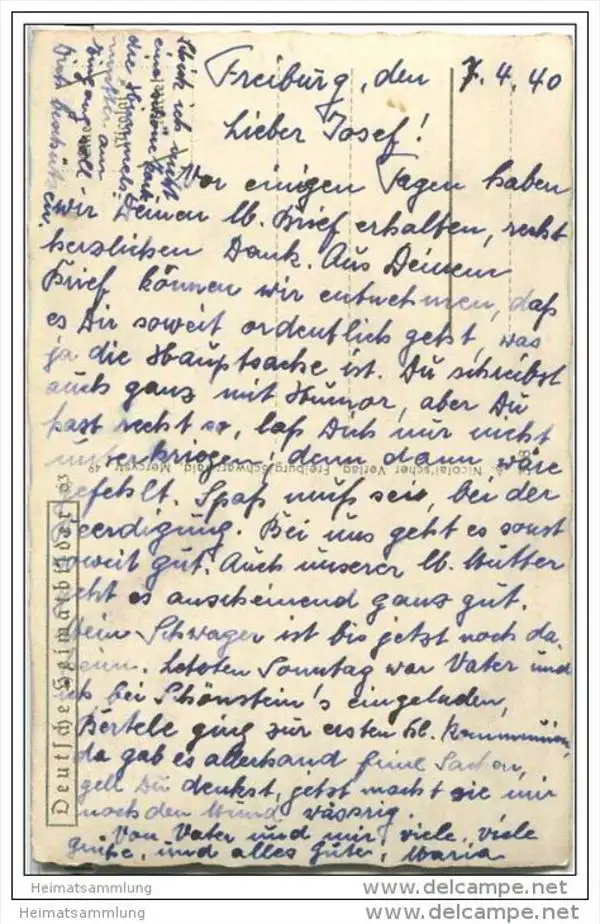 Freiburg, den 7.4.40
Lieber Josef!
Vor einigen Tagen haben
wir Deinen lb. Brief erhalten, recht
herzlichen Dank. Aus Deinem
Brief können wir entnehmen, daß
es Dir soweit ordentlich geht, was
ja die Hauptsache ist. Du schreibst
auch ganz mit Humor, aber Du
hast recht so, laß Dich nur nicht
unterkriegen, denn dann wäre
gefehlt. Spaß muß sein, bei der
Beerdigung. Bei uns geht es sonst
soweit gut. Auch unserer lb. Mutter
geht es anscheinend ganz gut.
Mein Schwager ist bis jetzt noch da-
heim. Letzten Sonntag war Vater und
ich bei Schönstein's eingeladen,
Bertele ging zur ersten hl. Kommunion,
da gab es allerhand feine Sachen,
gell Du denkst, jetzt macht sie mir
noch den Mund wässrig.
Von Vater und mir, viele, viele
grüße, und alles Gute, Maria
Schick ich nicht
eine schöne Karte
die Himmels-
mutter am
Eingang soll
Dich beschützen.
Deutsche Heimatbilder
Nicolai'scher Verlag Freiburg Schwarzwald Mercystr. 49
Heimatsammlung
www.ansichtskarten-center.de
Heimatsammlung
www.ansichtskarten-center.de